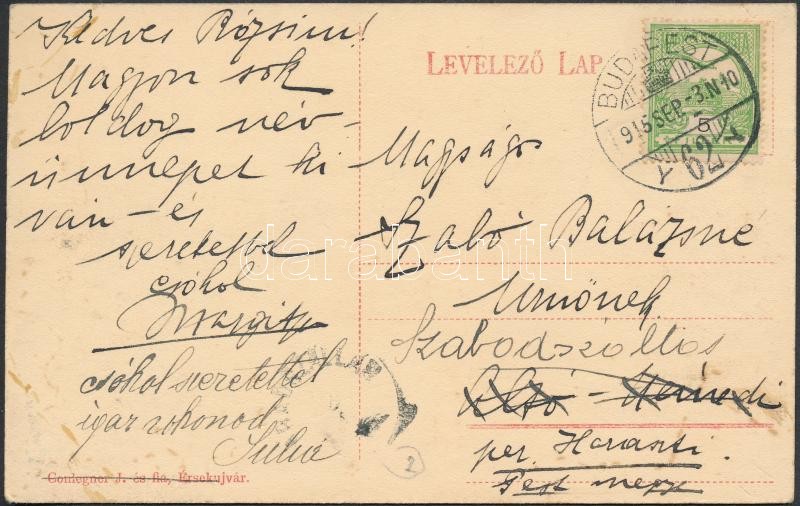 Kedves Rózsim!
Nagyon sok
boldog név-
ünnepet ki
ván - és
szeretettel
csókol
Margit
csókol szeretettel
igaz rokonod
LEVELEZŐ LAP
BUDAPEST
915 SEP. -3 N 10
62
Y Y
5
Nagyságos
Szabó Balázsné
Urnőnek
Szabadszállás
Alsó - Némedi
per. Haraszti.
Pest megye
2
Conlegner J. és fia, Érsekujvár.
darabanth